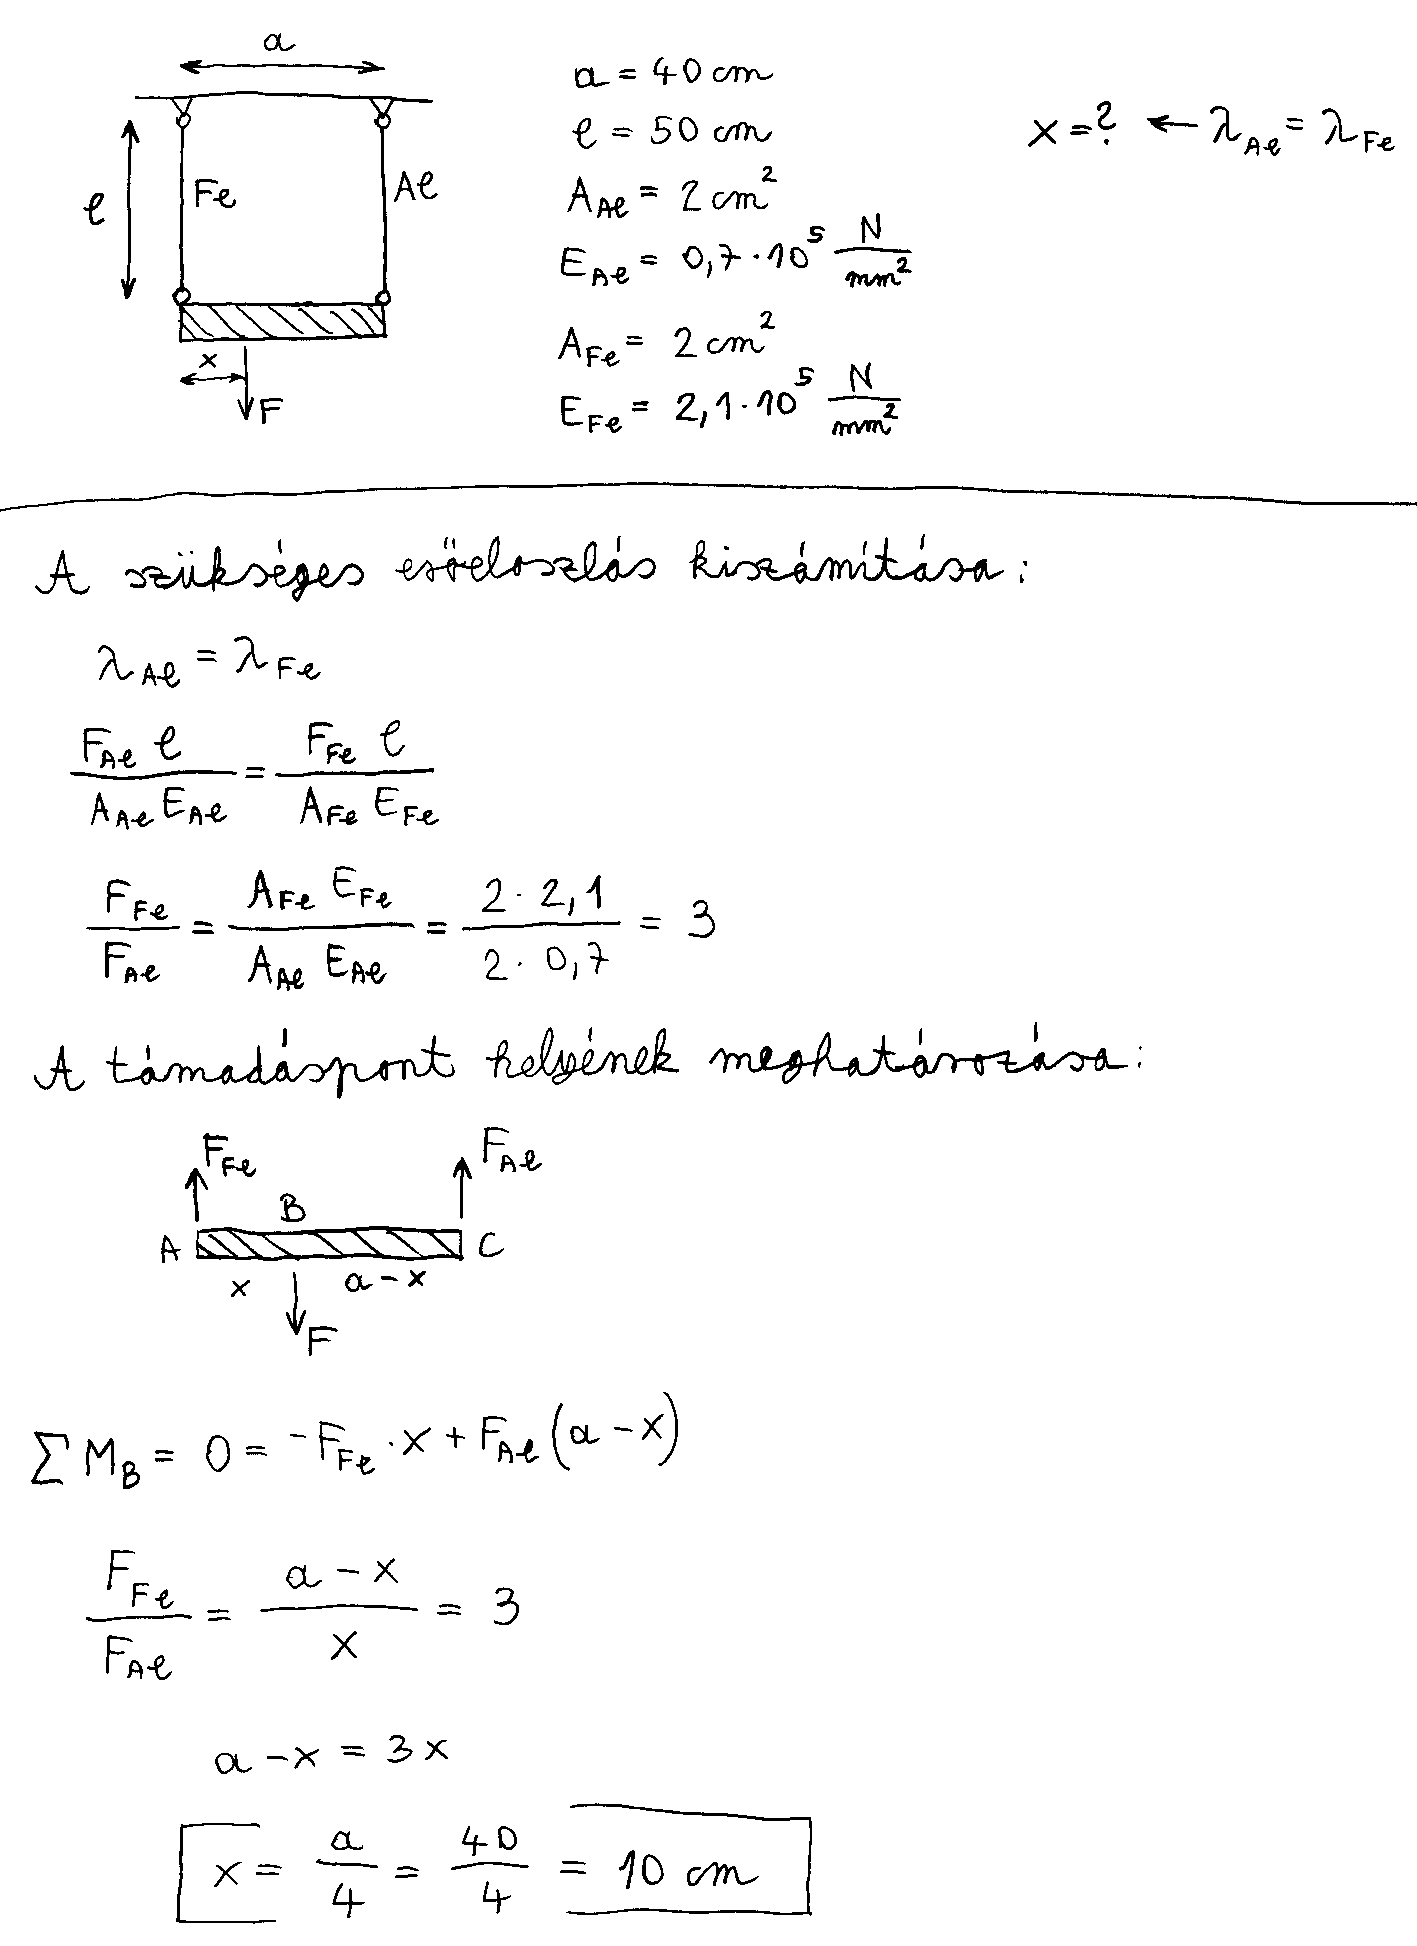 a
a = 40 cm
l = 50 cm
x = ? ← λ_Al = λ_Fe
l
Fe
Al
A_Al = 2 cm²
E_Al = 0,7 · 10⁵ N/mm²
A_Fe = 2 cm²
E_Fe = 2,1 · 10⁵ N/mm²
x
F
A szükséges erőeloszlás kiszámítása:
λ_Al = λ_Fe
F_Al l / A_Al E_Al = F_Fe l / A_Fe E_Fe
F_Fe / F_Al = A_Fe E_Fe / A_Al E_Al = 2 · 2,1 / 2 · 0,7 = 3
A támadáspont helyének meghatározása:
F_Fe
F_Al
B
A
C
x
a - x
F
∑ M_B = 0 = -F_Fe · x + F_Al (a - x)
F_Fe / F_Al = a - x / x = 3
a - x = 3x
x = a/4 = 40/4 = 10 cm